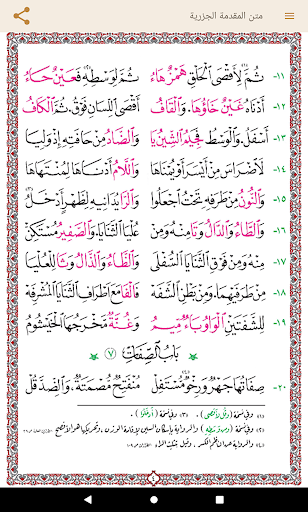 متن المقدمة الجزرية
١١- ثُمَّ لِأَقْصَى الْحَلْقِ هَمْزٌ هَاءُ ثُمَّ لِوَسْطِهِ فَعَيْنٌ حَاءُ
١٢- أَدْنَاهُ غَيْنٌ خَاؤُهَا، وَالْقَافُ أَقْصَى اللِّسَانِ فَوْقُ، ثُمَّ الْكَافُ
١٣- أَسْفَلُ، وَالْوَسْطُ فَجِيمُ الشِّينُ يَا وَالضَّادُ مِنْ حَافَتِهِ إِذْ وَلِيَا
١٤- لَاضْرَاسَ مِنْ أَيْسَرَ أَوْ يُمْنَاهَا وَاللَّامُ أَدْنَاهَا لِمُنْتَهَاهَا
١٥- وَالنُّونُ مِنْ طَرْفِهِ تَحْتُ اجْعَلُوا وَالرَّا يُدَانِيهِ لِظَهْرٍ أَدْخَلُ
١٦- وَالطَّاءُ وَالدَّالُ وَتَا مِنْهُ وَمِنْ عُلْيَا الثَّنَايَا، وَالصَّفِيرُ مُسْتَكِنْ
١٧- مِنْهُ وَمِنْ فَوْقِ الثَّنَايَا السُّفْلَى وَالظَّاءُ وَالذَّالُ وَثَا لِلْعُلْيَا
١٨- مِنْ طَرَفَيْهِمَا، وَمِنْ بَطْنِ الشَّفَهْ فَالْفَا مَعَ اطْرَافِ الثَّنَايَا الْمُشْرِفَهْ
١٩- لِلشَّفَتَيْنِ الْوَاوُ بَاءٌ مِيمُ وَغُنَّةٌ مَخْرَجُهَا الْخَيْشُومُ
بَابُ الصِّفَاتِ ٧
٢٠- صِفَاتُهَا جَهْرٌ وَرِخْوٌ مُسْتَفِلْ مُنْفَتِحٌ مُصْمَتَةٌ، وَالضِّدَّ قُلْ